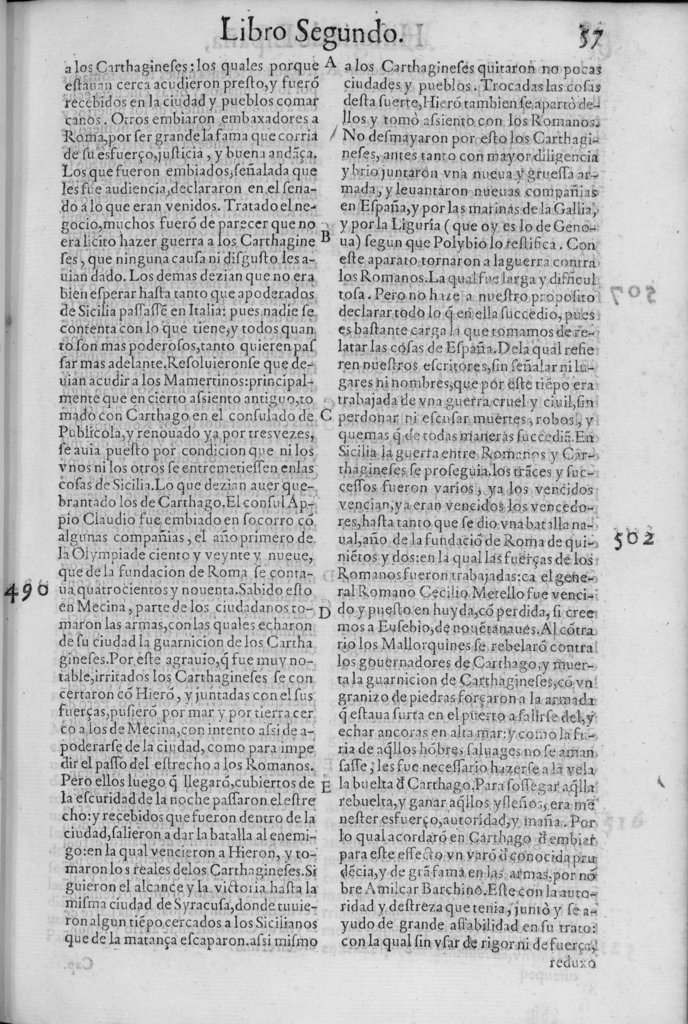 Libro Segundo.
57
a los Carthagineses: los quales porque
estauan cerca acudieron presto, y fuerõ
recebidos en la ciudad y pueblos comar
canos. Otros embiaron embaxadores a
Roma, por ser grande la fama que corria
de su esfuerço, justicia, y buena andãça.
Los que fueron embiados, señalada que
les fue audiencia, declararon en el sena-
do a lo que eran venidos. Tratado el ne-
gocio, muchos fuerõ de parecer que no
era licito hazer guerra a los Carthagine
ses, que ninguna causa ni disgusto les a-
uian dado. Los demas dezian que no era
bien esperar hasta tanto que apoderados
de Sicilia passassẽ en Italia: pues nadie se
contenta con lo que tiene, y todos quan
to son mas poderosos, tanto quieren pas
sar mas adelante. Resoluieronse que de-
uian acudir a los Mamertinos: principal-
mente que en cierto assiento antiguo, to
mado con Carthago en el consulado de
Publicola, y renouado ya por tres vezes,
se auia puesto por condicion que ni los
vnos ni los otros se entremetiessen en las
cosas de Sicilia. Lo que dezian auer que-
brantado los de Carthago. El consul Ap-
pio Claudio fue embiado en socorro cõ
algunas compañias, el año primero de
la Olympiade ciento y veynte y nueue,
que de la fundacion de Roma se conta-
ua quatrocientos y nouenta. Sabido esto
en Mecina, parte de los ciudadanos to-
maron las armas, con las quales echaron
de su ciudad la guarnicion de los Cartha
gineses. Por este agrauio, q̃ fue muy no-
table, irritados los Carthagineses se con
certaron cõ Hierõ, y juntadas con el sus
fuerças, pusierõ por mar y por tierra cer
co a los de Mecina, con intento assi de a-
poderarse de la ciudad, como para impe
dir el passo del estrecho a los Romanos.
Pero ellos luego q̃ llegarõ, cubiertos de
la escuridad de la noche passaron el estre
cho: y recebidos que fueron dentro de la
ciudad, salieron a dar la batalla al enemi-
go: en la qual vencieron a Hieron, y to-
maron los reales de los Carthagineses. Si
guieron el alcance y la victoria hasta la
misma ciudad de Syracusa, donde tuuie-
ron algun tiẽpo cercados a los Sicilianos
que de la matança escaparon. assi mismo
490
A
B
C
D
E
a los Carthagineses quitaron no pocas
ciudades y pueblos. Trocadas las cosas
desta suerte, Hierõ tambien se apartò de-
llos y tomò assiento con los Romanos.
No desmayaron por esto los Carthagi-
neses, antes tanto con mayor diligencia
y brio juntaron vna nueua y gruessa ar-
mada, y leuantaron nueuas compañias
en España, y por las marinas de la Gallia,
y por la Liguria (que oy es lo de Geno-
ua) segun que Polybio lo testifica. Con
este aparato tornaron a la guerra contra
los Romanos. La qual fue larga y difficul
tosa. Pero no haze a nuestro proposito
declarar todo lo q̃ en ella succedio, pues
es bastante carga la que tomamos de re-
latar las cosas de España. De la qual refie
ren nuestros escritores, sin señalar ni lu-
gares ni nombres, que por este tiẽpo era
trabajada de vna guerra cruel y ciuil, sin
perdonar ni escusar muertes, robos, y
quemas q̃ de todas maneras succediã. En
Sicilia la guerra entre Romanos y Car-
thagineses se proseguia. los trãces y suc-
cessos fueron varios, ya los vencidos
vencian, ya eran vencidos los vencedo-
res, hasta tanto que se dio vna batalla na-
ual, año de la fundaciõ de Roma de qui-
niẽtos y dos: en la qual las fuerças de los
Romanos fueron trabajadas: ca el gene-
ral Romano Cecilio Metello fue venci-
do y puesto en huyda, cõ perdida, si cree
mos a Eusebio, de nouẽta naues. Al cõtra
rio los Mallorquines se rebelarõ contra
los gouernadores de Carthago, y muer-
ta la guarnicion de Carthagineses, cõ vn
granizo de piedras forçaron a la armada
q̃ estaua surta en el puerto a salirse del, y
echar ancoras en alta mar: y como la fu-
ria de aq̃llos hõbres saluages no se aman
sasse, les fue necessario hazerse a la vela
la buelta d̃ Carthago. Para sossegar aq̃lla
rebuelta, y ganar aq̃llos ysleños, era me
nester esfuerço, autoridad, y maña. Por
lo qual acordarõ en Carthago d̃ embiar
para este effecto vn varõ d̃ conocida pru
dẽcia, y de grã fama en las armas, por nõ
bre Amilcar Barchino. Este con la auto-
ridad y destreza que tenia, juntò y se a-
yudo de grande affabilidad en su trato:
con la qual sin vsar de rigor ni de fuerça,
reduxo
502